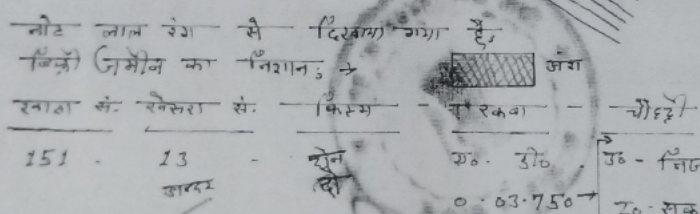 नोट लाल रंग से दिखाया गया है।
बिक्री जमीन का निशान: → अंश
खाता सं. खेसरा सं. किस्म - रकवा - चौहद्दी
151 - 13 - ए० डी० उ० -
अन्दर दो 0.03.750 → द०-